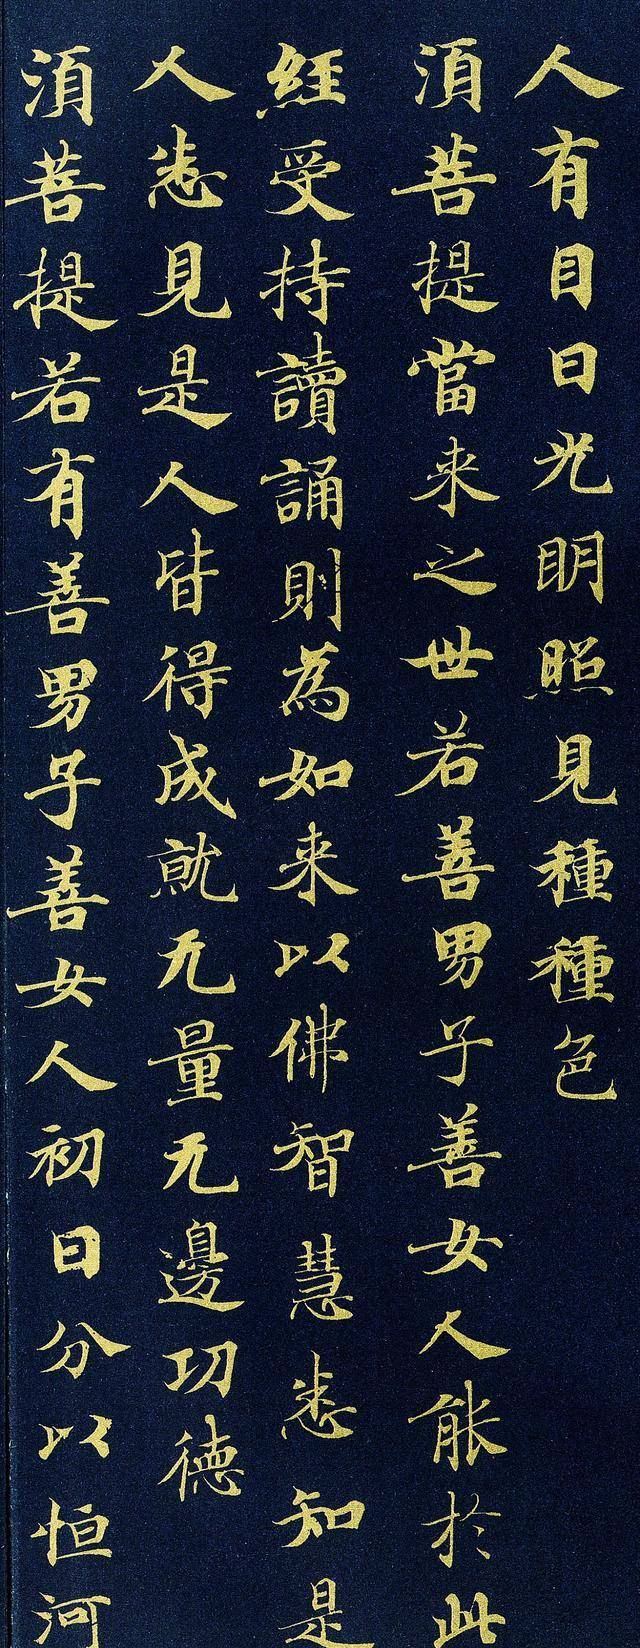 人有目日光明照見種種色
須菩提當来之世若善男子善女人能於此
經受持讀誦則為如来以佛智慧悉知是
人悉見是人皆得成就无量无邊功德
須菩提若有善男子善女人初日分以恒河